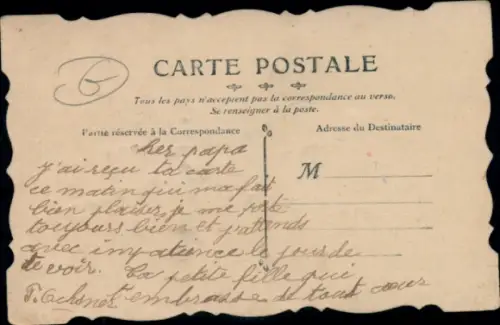 CARTE POSTALE
Tous les pays n'acceptent pas la correspondance au verso.
Se renseigner à la poste.
Partie réservée à la Correspondance
Adresse du Destinataire
M
Cher papa
J'ai reçu ta carte
ce matin qui ma fait
bien plaisir, je me porte
toujours bien et j'attends
avec impatience le jour de
te voir. Ta petite fille qui
t'embrasse de tout cœur